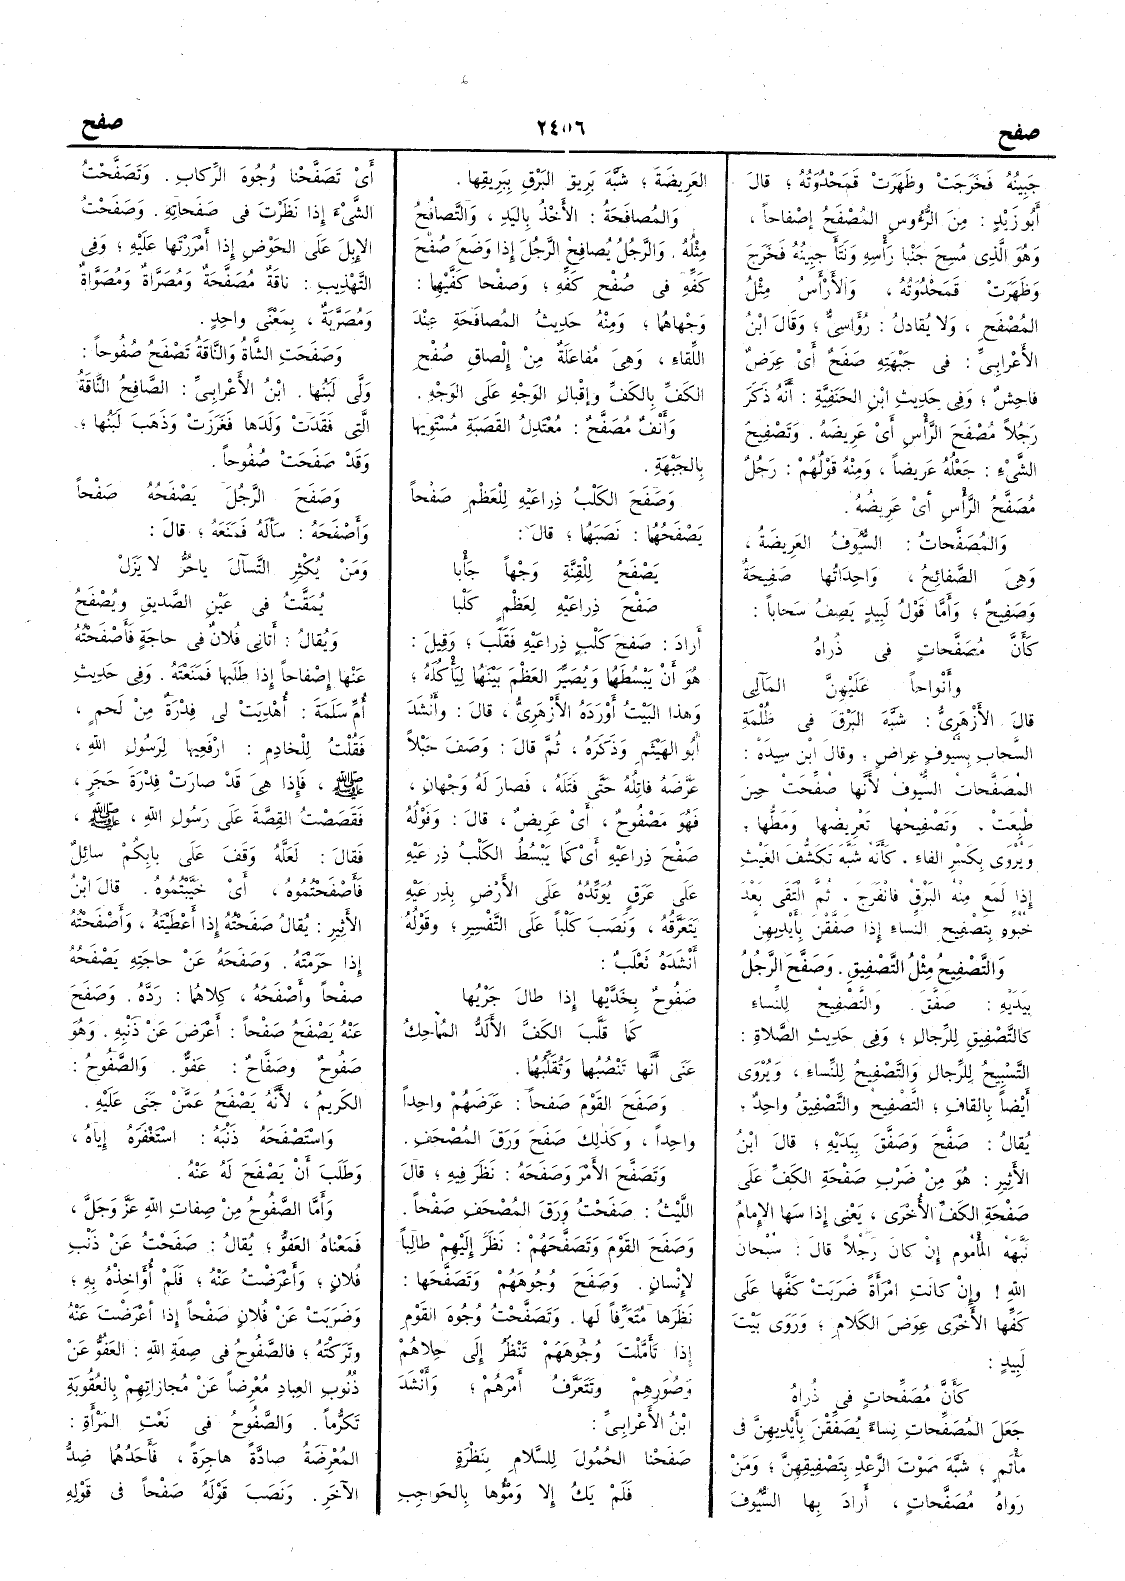 صفح
٢٤٥٦
صفح
جَبِينُهُ فَخَرَجَتْ وظَهَرَتْ قَمَحْدُوَتُهُ ؛ قالَ
أَبُو زَيْدٍ : مِنَ الرُّءُوسِ المُصْفَحُ إصْفاحاً ،
وَهُوَ الَّذِى مُسِحَ جَنْبا رَأْسِهِ وَنَتَأَ جَبِينُهُ فَخَرَجَ
وَظَهَرَتْ قَمَحْدُوَتُهُ ، وَالأَرْأَسُ مِثْلُ
المُصْفَحِ ، وَلا يُقالُ : رُؤَاسِىٌّ ؛ وَقالَ ابْنُ
الأَعْرابِىِّ : فى جَبْهَتِهِ صَفَحٌ أَىْ عِرَضٌ
فاحِشٌ ؛ وَفِى حَدِيثِ ابْنِ الحَنَفِيَّةِ : أَنَّهُ ذَكَرَ
رَجُلاً مُصْفَحَ الرَّأْسِ أَىْ عَرِيضَهُ . وَتَصْفِيحُ
الشَّىْءِ : جَعْلُهُ عَرِيضاً ، وَمِنْهُ قَوْلُهُمْ : رَجُلٌ
مُصَفَّحُ الرَّأْسِ أَىْ عَرِيضُهُ .
وَالمُصَفَّحاتُ : السُّيُوفُ العَرِيضَةُ ،
وَهِىَ الصَّفائِحُ ، وَاحِدَتُها صَفِيحَةٌ
وَصَفِيحٌ ؛ وَأَمَّا قَوْلُ لَبِيدٍ يَصِفُ سَحاباً :
كَأَنَّ مُصَفَّحاتٍ فى ذُراهُ
وأَنْواحاً عَلَيْهِنَّ المَآلِى
قالَ الأَزْهَرِىُّ : شَبَّهَ البَرْقَ فى ظُلْمَةِ
السَّحابِ بِسُيُوفٍ عِراضٍ ؛ وقالَ ابْنُ سِيدَهْ :
المُصَفَّحاتُ السُّيُوفُ لأَنَّها صُفِّحَتْ حِينَ
طُبِعَتْ . وَتَصْفِيحُها تَعْرِيضُها وَمَطُّها ؛
وَيُرْوَى بِكَسْرِ الفاءِ . كَأَنَّهُ شَبَّهَ تَكَشُّفَ الغَيْثِ
إذا لَمَعَ مِنْهُ البَرْقُ فانْفَرَجَ . ثُمَّ الْتَقَى بَعْدَ
خُبُوِّهِ بِتَصْفِيحِ النِّساءِ إذا صَفَّقْنَ بِأَيْدِيهِنَّ
وَالتَّصْفِيحُ مِثْلُ التَّصْفِيقِ . وَصَفَّحَ الرَّجُلُ
بِيَدَيْهِ : صَفَّقَ . وَالتَّصْفِيحُ لِلنِّساءِ
كالتَّصْفِيقِ لِلرِّجالِ ؛ وَفِى حَدِيثِ الصَّلاةِ :
التَّسْبِيحُ لِلرِّجالِ وَالتَّصْفِيحُ لِلنِّساءِ ، وَيُرْوَى
أَيْضاً بِالقافِ ؛ التَّصْفِيحُ والتَّصْفِيقُ وَاحِدٌ ؛
يُقالُ : صَفَّحَ وَصَفَّقَ بِيَدَيْهِ ؛ قالَ ابْنُ
الأَثِيرِ : هُوَ مِنْ ضَرْبِ صَفْحَةِ الكَفِّ عَلَى
صَفْحَةِ الكَفِّ الأُخْرَى ، يَعْنِى إذا سَها الإمامُ
نَبَّهَهُ المأْمُومُ إنْ كانَ رَجُلاً قالَ : سُبْحانَ
اللهِ ! وإنْ كانَتِ امْرَأَةً ضَرَبَتْ كَفَّها عَلَى
كَفِّها الأُخْرَى عِوَضَ الكَلامِ ؛ وَرَوَى بَيْتَ
لَبِيدٍ :
كَأَنَّ مُصَفِّحاتٍ فى ذُراهُ
جَعَلَ المُصَفِّحاتِ نِساءً يُصَفِّقْنَ بِأَيْدِيهِنَّ فى
مَأْتَمٍ ؛ شَبَّهَ صَوْتَ الرَّعْدِ بِتَصْفِيقِهِنَّ ؛ وَمَنْ
رَواهُ مُصَفَّحاتٍ ، أَرادَ بِها السُّيُوفَ
العَرِيضَةَ ؛ شَبَّهَ بَرِيقَ البَرْقِ بِبَرِيقِها .
وَالمُصافَحَةُ : الأَخْذُ بِاليَدِ ، وَالتَّصافُحُ
مِثْلُهُ . وَالرَّجُلُ يُصافِحُ الرَّجُلَ إذا وَضَعَ صُفْحَ
كَفِّهِ فى صُفْحِ كَفِّهِ ؛ وَصُفْحا كَفَّيْهِما :
وَجْهاهُما ؛ وَمِنْهُ حَدِيثُ المُصافَحَةِ عِنْدَ
اللِّقاءِ ، وَهِىَ مُفاعَلَةٌ مِنْ إلْصاقِ صُفْحِ
الكَفِّ بِالكَفِّ وإقْبالِ الوَجْهِ عَلَى الوَجْهِ .
وَأَنْفٌ مُصَفَّحٌ : مُعْتَدِلُ القَصَبَةِ مُسْتَوِيها
بِالجَبْهَةِ .
وَصَفَحَ الكَلْبُ ذِراعَيْهِ لِلْعَظْمِ صَفْحاً
يَصْفَحُهُما : نَصَبَهُما ؛ قالَ :
يَصْفَحُ لِلْقِنَّةِ وَجْهاً جَأْبا
صَفْحَ ذِراعَيْهِ لِعَظْمٍ كَلْبا
أَرادَ : صَفْحَ كَلْبٍ ذِراعَيْهِ فَقَلَبَ ؛ وَقِيلَ :
هُوَ أَنْ يَبْسُطَهُما وَيُصَيِّرَ العَظْمَ بَيْنَهُما لِيَأْكُلَهُ ؛
وَهذا البَيْتُ أَوْرَدَهُ الأَزْهَرِىُّ ، قالَ : وَأَنْشَدَ
أَبُو الهَيْثَمِ وَذَكَرَهُ ، ثُمَّ قالَ : وَصَفَ حَبْلاً
عَرَّضَهُ فاتِلُهُ حَتَّى فَتَلَهُ ، فَصارَ لَهُ وَجْهانِ ،
فَهُوَ مَصْفُوحٌ ، أَىْ عَرِيضٌ ، قالَ : وَقَوْلُهُ
صَفْحَ ذِراعَيْهِ أَىْ كَما يَبْسُطُ الكَلْبُ ذِرَاعَيْهِ
عَلَى عَرَقٍ يُوَتِّدُهُ عَلَى الأَرْضِ بِذِرَاعَيْهِ
يَتَعَرَّقُهُ ، وَنَصَبَ كَلْباً عَلَى التَّفْسِيرِ ؛ وَقَوْلُهُ
أَنْشَدَهُ ثَعْلَبٌ :
صَفُوحٌ بِخَدَّيْها إذا طالَ جَرْيُها
كَما قَلَّبَ الكَفَّ الأَلَدُّ المُماحِكُ
عَنَى أَنَّها تَنْصُبُها وَتُقَلِّبُها .
وَصَفَحَ القَوْمَ صَفْحاً : عَرَضَهُمْ واحِداً
واحِداً ، وَكَذلِكَ صَفَحَ وَرَقَ المُصْحَفِ .
وَتَصَفَّحَ الأَمْرَ وَصَفَحَهُ : نَظَرَ فِيهِ ؛ قالَ
اللَّيْثُ : صَفَحْتُ وَرَقَ المُصْحَفِ صَفْحاً .
وَصَفَحَ القَوْمَ وَتَصَفَّحَهُمْ : نَظَرَ إلَيْهِمْ طالِباً
لإنْسانٍ . وَصَفَحَ وُجُوهَهُمْ وَتَصَفَّحَها :
نَظَرَها مُتَعَرِّفاً لَها . وَتَصَفَّحْتُ وُجُوهَ القَوْمِ
إذا تَأَمَّلْتَ وُجُوهَهُمْ تَنْظُرُ إلَى حِلاهُمْ
وَصُوَرِهِمْ وَتَتَعَرَّفُ أَمْرَهُمْ ؛ وَأَنْشَدَ
ابْنُ الأَعْرابِىِّ :
صَفَحْنا الحُمُولَ لِلسَّلامِ بِنَظْرَةٍ
فَلَمْ يَكُ إلا وَمْؤُها بِالحَواجِبِ
أَىْ تَصَفَّحْنا وُجُوهَ الرِّكابِ . وَتَصَفَّحْتُ
الشَّىْءَ إذا نَظَرْتَ فى صَفَحاتِهِ . وَصَفَحْتُ
الإبِلَ عَلَى الحَوْضِ إذا أَمْرَرْتَها عَلَيْهِ ؛ وَفِى
التَّهْذِيبِ : ناقَةٌ مُصَفَّحَةٌ وَمُصَرَّاةٌ وَمُصَوَّاةٌ
وَمُصَرَّبَةٌ ، بِمَعْنًى واحِدٍ .
وَصَفَحَتِ الشَّاةُ وَالنَّاقَةُ تَصْفَحُ صُفُوحاً :
وَلَّى لَبَنُها . ابْنُ الأَعْرابِىِّ : الصَّافِحُ النَّاقَةُ
الَّتِى فَقَدَتْ وَلَدَها فَغَرَزَتْ وَذَهَبَ لَبَنُها ؛
وَقَدْ صَفَحَتْ صُفُوحاً .
وَصَفَحَ الرَّجُلَ يَصْفَحُهُ صَفْحاً
وَأَصْفَحَهُ : سَأَلَهُ فَمَنَعَهُ ؛ قالَ :
وَمَنْ يُكْثِرِ التَّسْآلَ ياحُرُّ لا يَزَلْ
يُمَقَّتُ فى عَيْنِ الصَّدِيقِ ويُصْفَحُ
وَيُقالُ : أَتانِى فُلانٌ فى حاجَةٍ فَأَصْفَحْتُهُ
عَنْها إصْفاحاً إذا طَلَبَها فَمَنَعْتَهُ . وَفِى حَدِيثِ
أُمِّ سَلَمَةَ : أُهْدِيَتْ لِى فِدْرَةٌ مِنْ لَحْمٍ ،
فَقُلْتُ لِلْخادِمِ : ارْفَعِيها لِرَسُولِ اللهِ ،
ﷺ ، فَإذا هِىَ قَدْ صارَتْ فِدْرَةَ حَجَرٍ ،
فَقَصَصْتُ القِصَّةَ عَلَى رَسُولِ اللهِ ، ﷺ ،
فَقالَ : لَعَلَّهُ وَقَفَ عَلَى بابِكُمْ سائِلٌ
فَأَصْفَحْتُمُوهُ ، أَىْ خَيَّبْتُمُوهُ . قالَ ابْنُ
الأَثِيرِ : يُقالُ صَفَحْتُهُ إذا أَعْطَيْتَهُ ، وَأَصْفَحْتُهُ
إذا حَرَمْتَهُ . وَصَفَحَهُ عَنْ حاجَتِهِ يَصْفَحُهُ
صَفْحاً وأَصْفَحَهُ ، كِلاهُما : رَدَّهُ . وَصَفَحَ
عَنْهُ يَصْفَحُ صَفْحاً : أَعْرَضَ عَنْ ذَنْبِهِ . وَهُوَ
صَفُوحٌ وَصَفَّاحٌ : عَفُوٌّ . وَالصَّفُوحُ :
الكَرِيمُ ، لأَنَّهُ يَصْفَحُ عَمَّنْ جَنَى عَلَيْهِ .
وَاسْتَصْفَحَهُ ذَنْبَهُ : اسْتَغْفَرَهُ إيّاهُ ،
وَطَلَبَ أَنْ يَصْفَحَ لَهُ عَنْهُ .
وَأَمَّا الصَّفُوحُ مِنْ صِفاتِ اللهِ عَزَّ وَجَلَّ ،
فَمَعْناهُ العَفُوُّ ؛ يُقالُ : صَفَحْتُ عَنْ ذَنْبِ
فُلانٍ ؛ وَأَعْرَضْتُ عَنْهُ ؛ فَلَمْ أُوَاخِذْهُ بِهِ ؛
وَضَرَبْتُ عَنْ فُلانٍ صَفْحاً إذا أَعْرَضْتَ عَنْهُ
وَتَرَكْتَهُ ؛ فالصَّفُوحُ فى صِفَةِ اللهِ : العَفُوُّ عَنْ
ذُنُوبِ العِبادِ مُعْرِضاً عَنْ مُجازاتِهِمْ بِالعُقُوبَةِ
تَكَرُّماً . وَالصَّفُوحُ فى نَعْتِ المَرْأَةِ :
المُعْرِضَةُ صادَّةً هاجِرَةً ، فَأَحَدُهُما ضِدُّ
الآخَرِ . وَنَصَبَ قَوْلَهُ صَفْحاً فى قَوْلِهِ